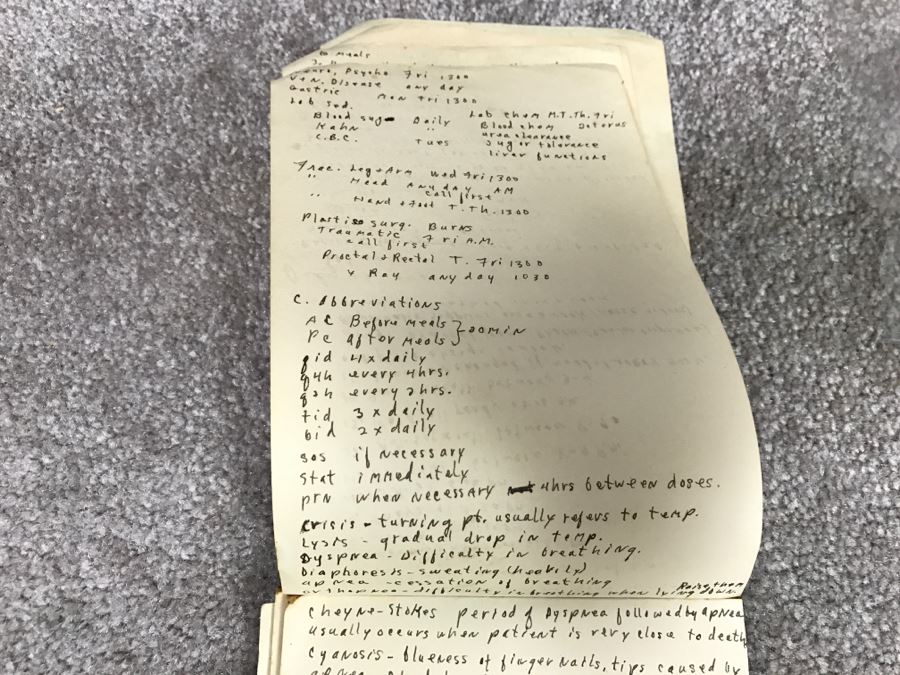 to meals
Psycho Fri 1300
Ven. Disease any day
Gastric Mon Fri 1300
Lab Sed.
Blood sug Daily Lab chem M.T.Th.Fri
Kahn " Blood chem Icterus
C.B.C. Tues urea clearance
sugar tolerance
liver functions
Frac. Leg+Arm Wed Fri 1300
" Head any day AM
call first
" Hand + Foot T. Th. 1300
Plastic surg. Burns
Traumatic Fri A.M.
call first
Proctal + Rectal T. Fri 1300
X Ray any day 1030
C. Abbreviations
AC Before meals
Pc after meals } 20 min
qid 4x daily
q4h every 4hrs.
q2h every 2hrs.
tid 3x daily
bid 2x daily
sos if necessary
stat immediately
prn when necessary 4hrs between doses.
crisis - turning pt. usually refers to temp.
Lysis - gradual drop in temp.
Dyspnea - Difficulty in breathing.
Diaphoresis - sweating (heavily)
apnea - cessation of breathing
orthopnea - difficulty in breathing when lying down. Raise them
Cheyne-Stokes period of Dyspnea followed by apnea
usually occurs when patient is very close to death
cyanosis - blueness of finger nails, tips caused by